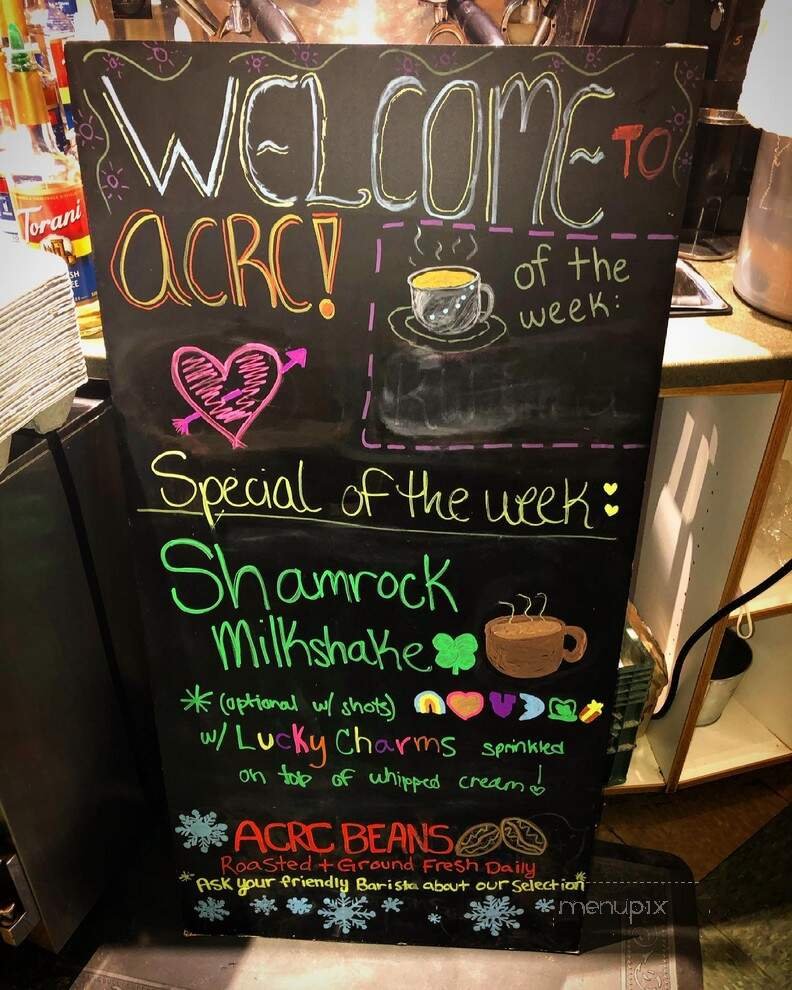 WELCOME TO
ACRC!
of the
week:
Special of the week:
Shamrock
Milkshake
* (optional w/ shots)
w/ Lucky Charms sprinkled
on top of whipped cream!
ACRC BEANS
Roasted + Ground Fresh Daily
*Ask your friendly Barista about our selection*
Torani
menupix